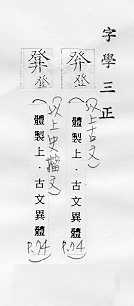 字學三正
登
(以上古文)
(體製上．古文異體P.74)
登
(以上史籀文)
(體製上．古文異體P.74)